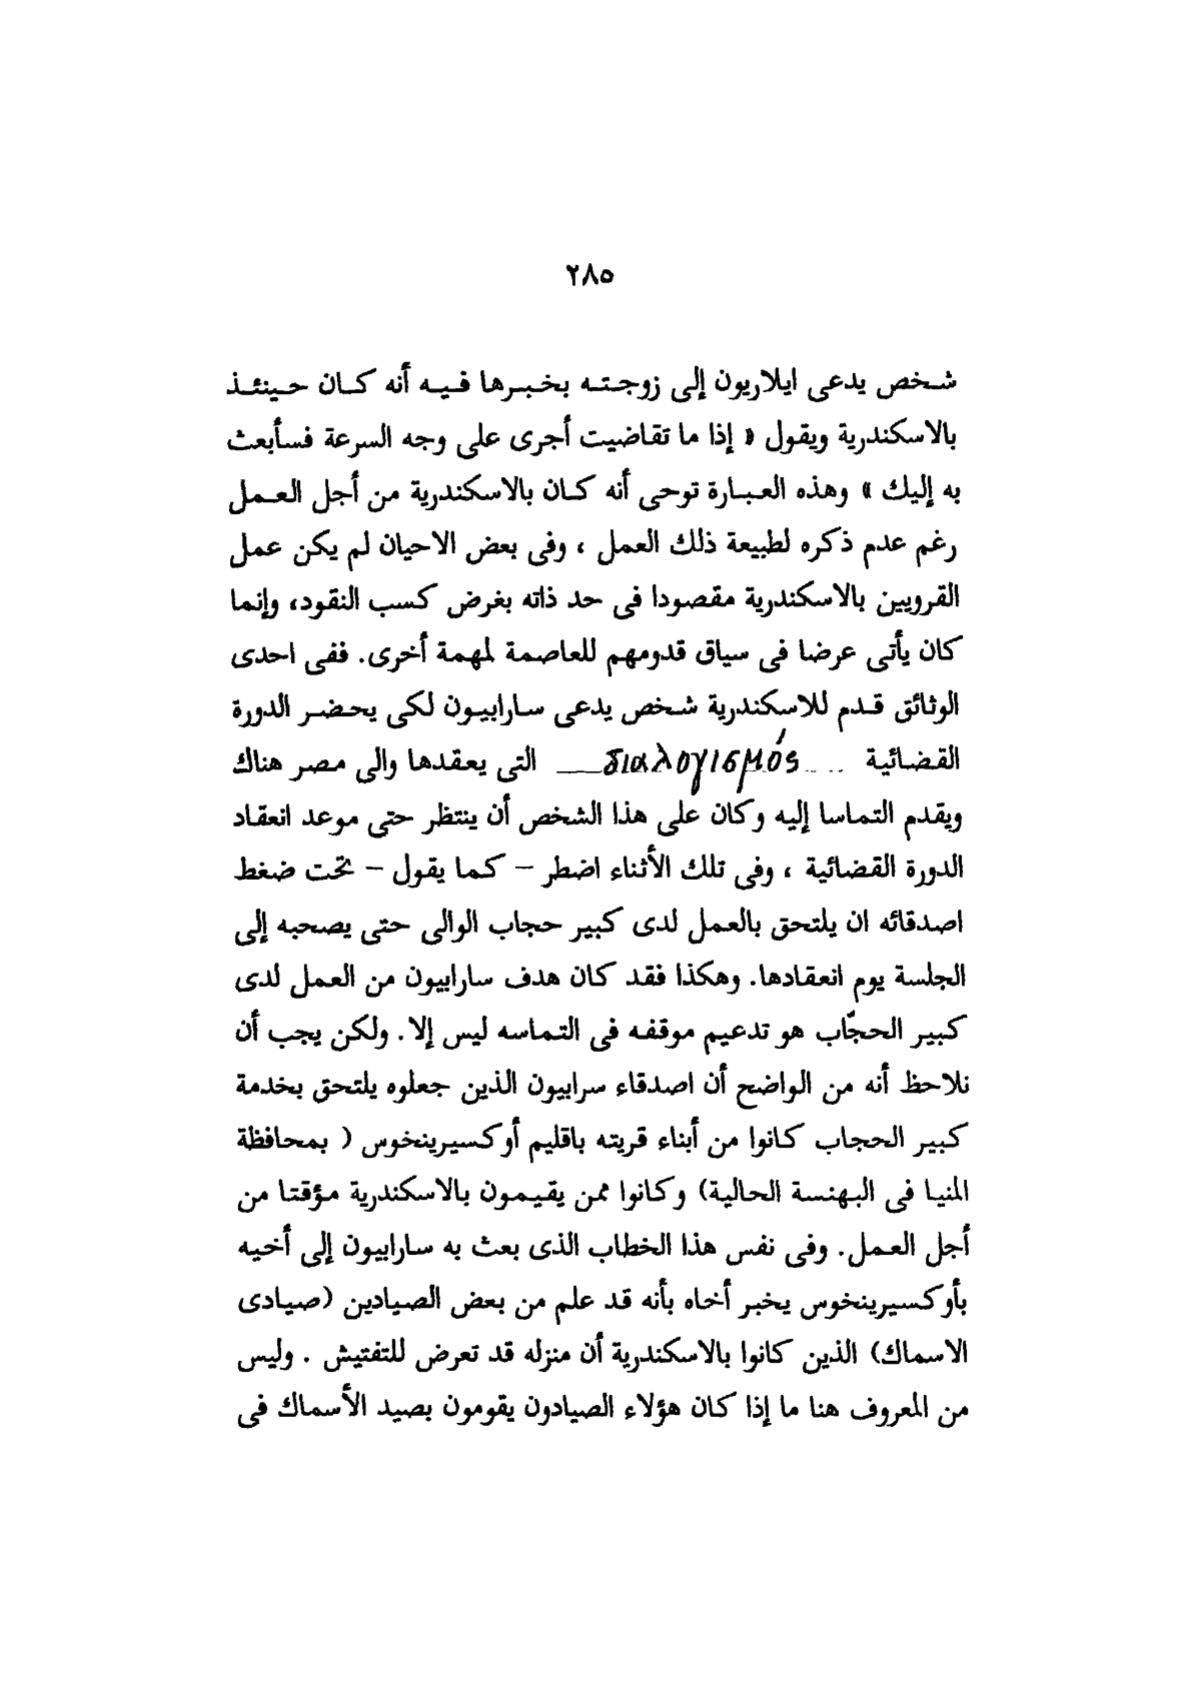 ٢٨٥
شخص يدعى ايلاريون إلى زوجته بخبرها فيه أنه كان حينئذ
بالاسكندرية ويقول « إذا ما تقاضيت أجرى على وجه السرعة فسأبعث
به إليك » وهذه العبارة توحى أنه كان بالاسكندرية من أجل العمل
رغم عدم ذكره لطبيعة ذلك العمل ، وفى بعض الاحيان لم يكن عمل
القرويين بالاسكندرية مقصودا فى حد ذاته بغرض كسب النقود، وإنما
كان يأتى عرضا فى سياق قدومهم للعاصمة لمهمة أخرى. ففى احدى
الوثائق قدم للاسكندرية شخص يدعى سارابيون لكى يحضر الدورة
القضائية διαλογισμός التى يعقدها والى مصر هناك
ويقدم التماسا إليه وكان على هذا الشخص أن ينتظر حتى موعد انعقاد
الدورة القضائية ، وفى تلك الأثناء اضطر – كما يقول – تحت ضغط
اصدقائه ان يلتحق بالعمل لدى كبير حجاب الوالى حتى يصحبه إلى
الجلسة يوم انعقادها. وهكذا فقد كان هدف سارابيون من العمل لدى
كبير الحجّاب هو تدعيم موقفه فى التماسه ليس إلا. ولكن يجب أن
نلاحظ أنه من الواضح أن اصدقاء سرابيون الذين جعلوه يلتحق بخدمة
كبير الحجاب كانوا من أبناء قريته باقليم أوكسيرينخوس ( بمحافظة
المنيا فى البهنسة الحالية) وكانوا ممن يقيمون بالاسكندرية مؤقتا من
أجل العمل. وفى نفس هذا الخطاب الذى بعث به سارابيون إلى أخيه
بأوكسيرينخوس يخبر أخاه بأنه قد علم من بعض الصيادين (صيادى
الاسماك) الذين كانوا بالاسكندرية أن منزله قد تعرض للتفتيش . وليس
من المعروف هنا ما إذا كان هؤلاء الصيادون يقومون بصيد الأسماك فى